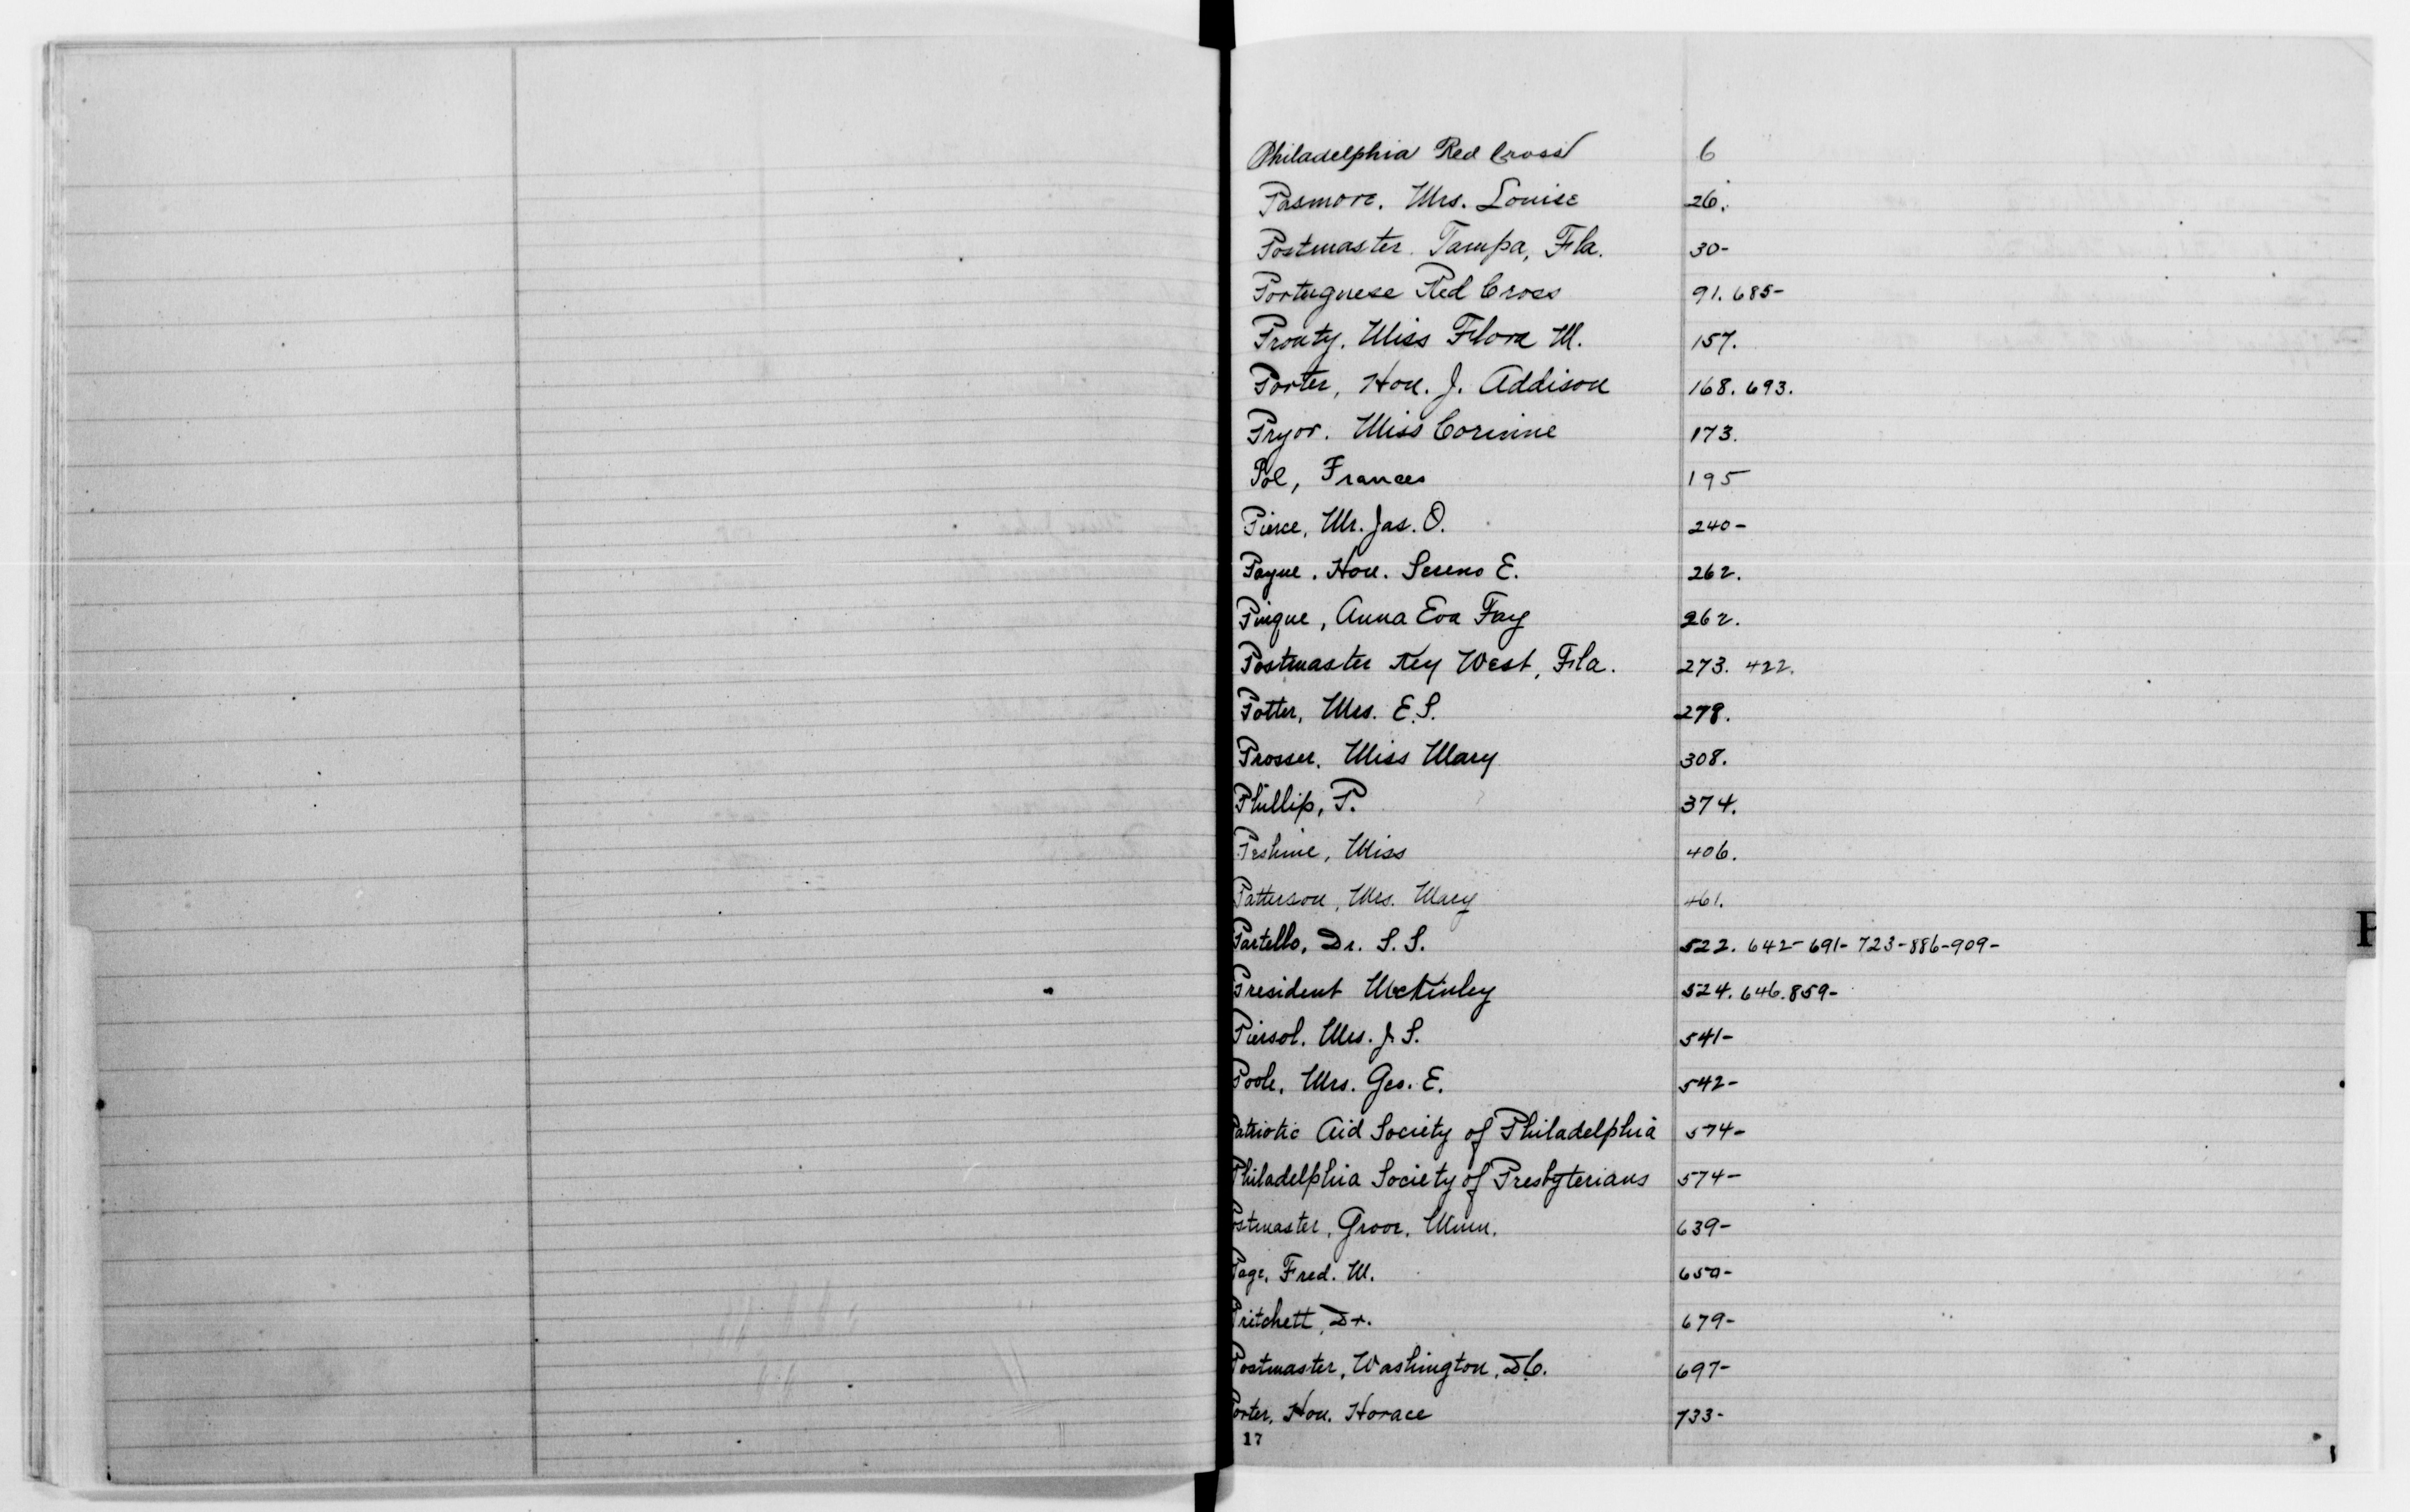 Philadelphia Red Cross 6
Pasmore. Mrs. Louise 26.
Postmaster. Tampa, Fla. 30-
Portuguese Red Cross 91. 685-
Prouty. Miss Flora M. 157.
Porter, Hon. J. Addison 168. 693.
Pryor. Miss Corinne 173.
Pol, Frances 195
Pierce, Mr. Jas. O. 240-
Payne. Hon. Sereno E. 262.
Pingue, Anna Eva Fay 262.
Postmaster Key West, Fla. 273. 422.
Potter, Mrs. E.S. 278.
Prosser. Miss Mary 308.
Phillip, P. 374.
Peshine, Miss 406.
Patterson, Mrs. Mary 461.
Partello, Dr. S. S. 522. 642- 691- 723-886-909-
President McKinley 524. 646. 859-
Piersol. Mrs. J. S. 541-
Poole, Mrs. Geo. E. 542-
Patriotic Aid Society of Philadelphia 574-
Philadelphia Society of Presbyterians 574-
Postmaster, Minn. 639-
Page, Fred. M. 650-
Pritchett, Dr. 679-
Postmaster, Washington, D.C. 697-
Porter, Hon. Horace 733-
17
P